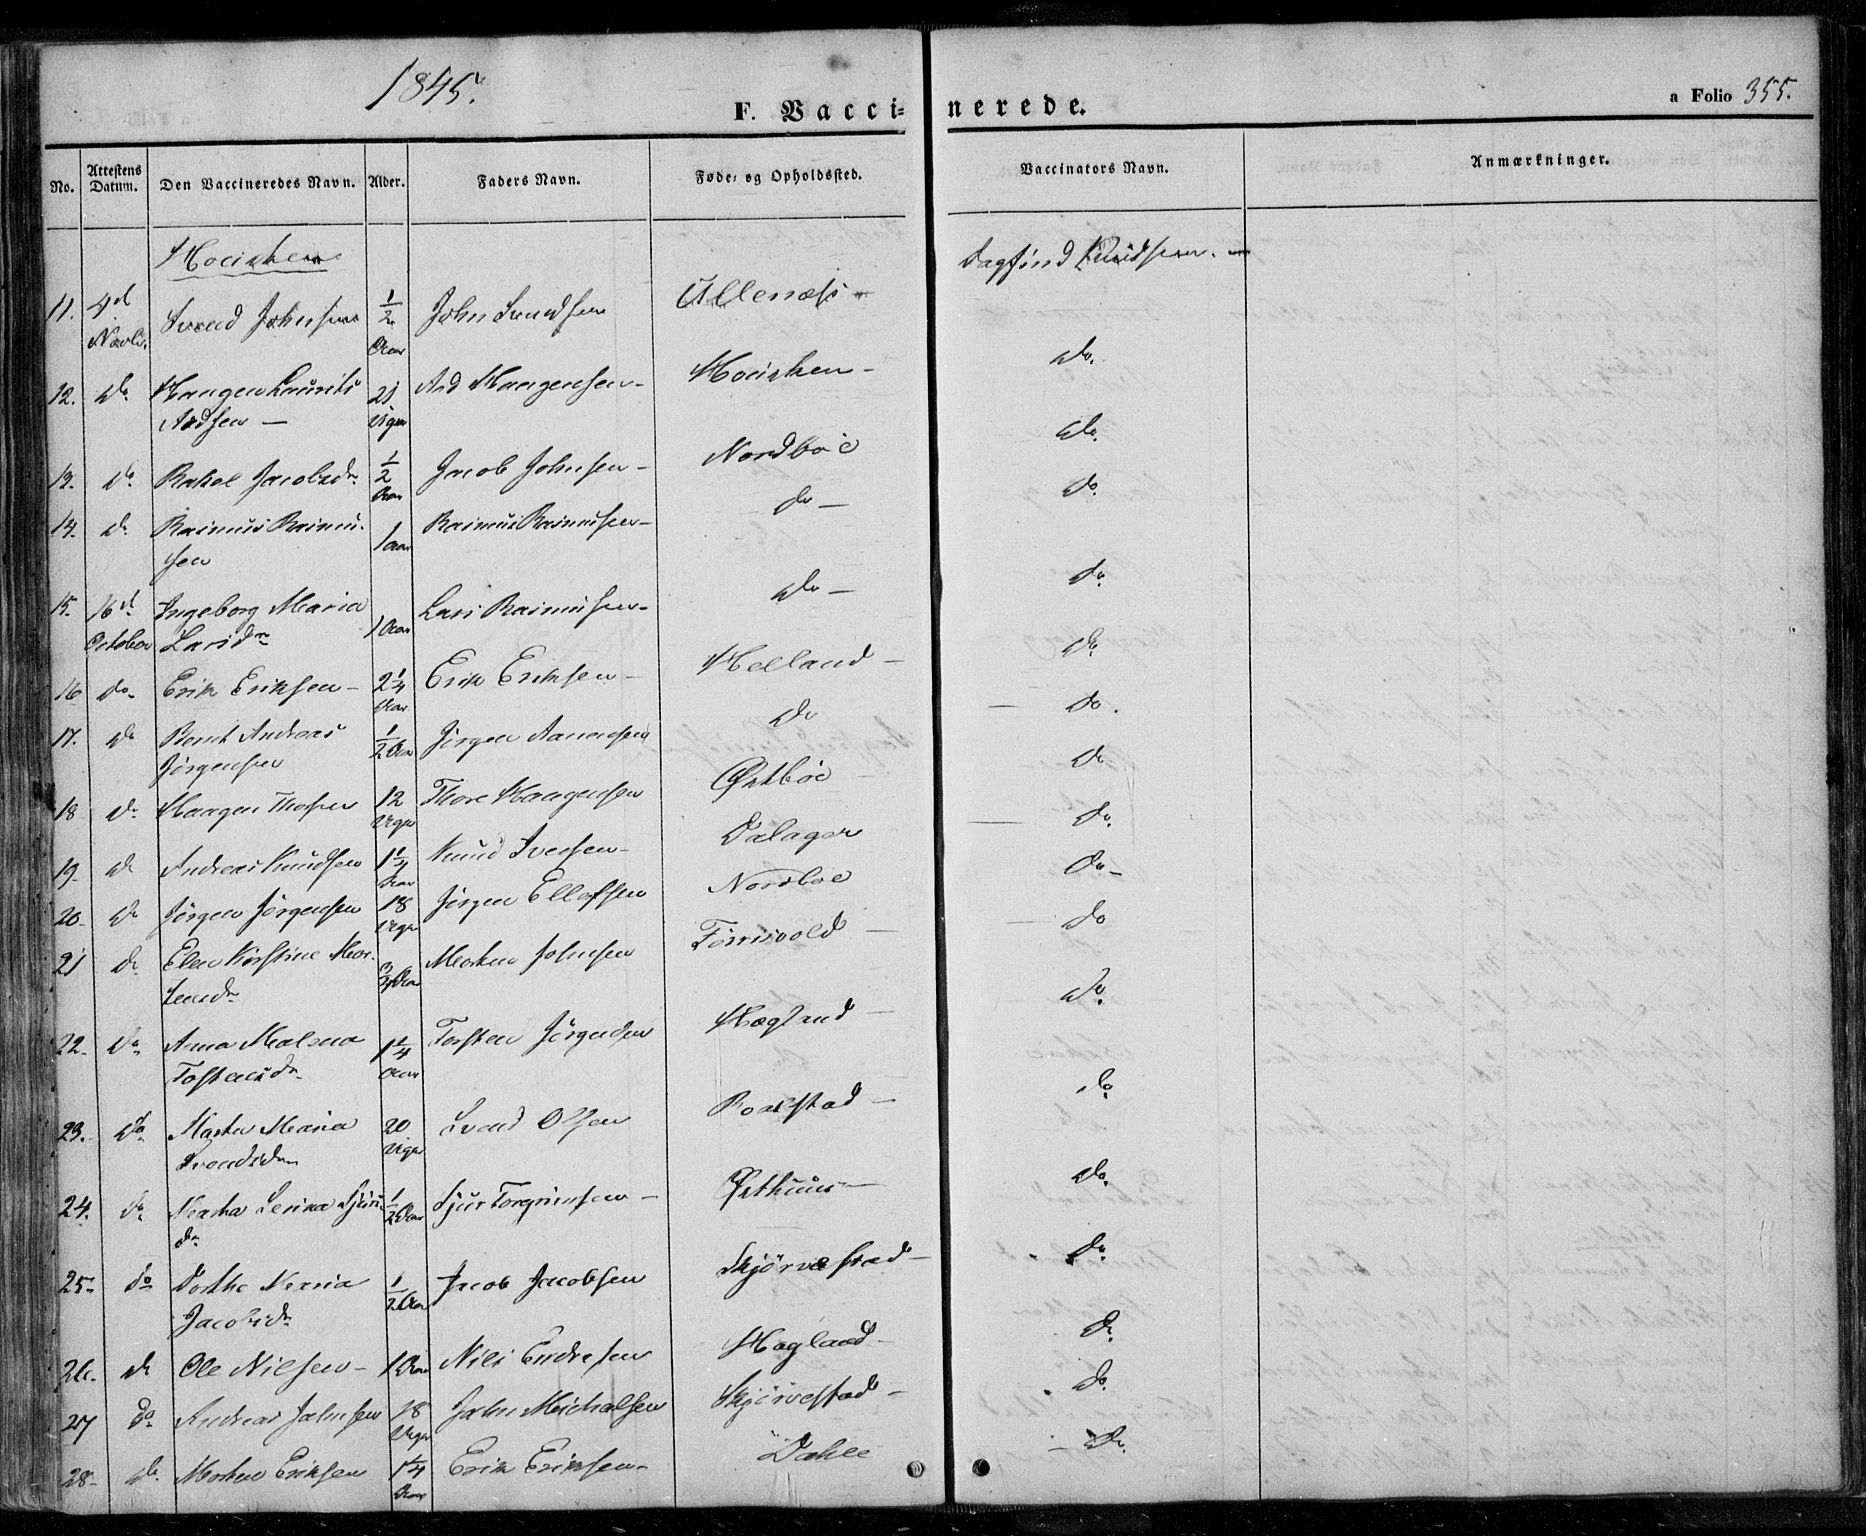 1845.
F. Vaccinerede.
a Folio 355.
No. Attestens Datum. Den Vaccineredes Navn. Alder. Faders Navn. Føde- og Opholdssted. Vaccinators Navn. Anmærkninger.
Dagfind Knudsen.
11. 4d Novbr. Svend Johnsen ½ Aar John Svendsen Ullenæs
12. Do Haagen Laurits Aadsen 21 Uger Aad Haagensen Do.
13. Do Rakel Jacobsdr. ½ Aar Jacob Johnsen Nordböe Do.
14. Do Rasmus Rasmussen 1 aar Rasmus Rasmussen do Do.
15. 16d October Ingeborg Maria Larsdr 1 Aar Lars Rasmussen Do Do.
16 Do Erik Eriksen 2¼ Aar Erik Eriksen Helland Do.
17. Do Bernt Andreas Jörgensen ½ Aar Jörgen Do Do.
18 Do Haagen Thorsen 12 Uger Thore Haagensen Østböe Do
19. Do Andreas Knudsen 1¼ Aar Knud Iversen Dalager Do.
20. Do Jörgen Jörgensen 18 Uger Jörgen Ellefsen Nordböe Do
21 Do Elen Kirstine Mortensdr ¾ Aar Morten Johnsen do
22. Do Anna Malena Tostensdr. 1¼ Aar Torsten Jörgensen Hægland Do.
23. Do Marta Maria Svendsdr 20 Uger Svend Olsen Roalstad do
24. Do Serina Sjursdr ½ Aar Sjur Torgrimsen Østhuus Do.
25. Do Dorthe Maria Jacobsdr ½ Aar Jacob Jacobsen Skjörvestad Do.
26. Do Ole Nilsen 1 Aar Nils Endresen Hægland Do.
27 Do Andreas Johnsen 18 Uger John Michalsen Skjörvestad Do.
28. Do Morten Eriksen 1¼ Aar Erik Eriksen Dahle Do.